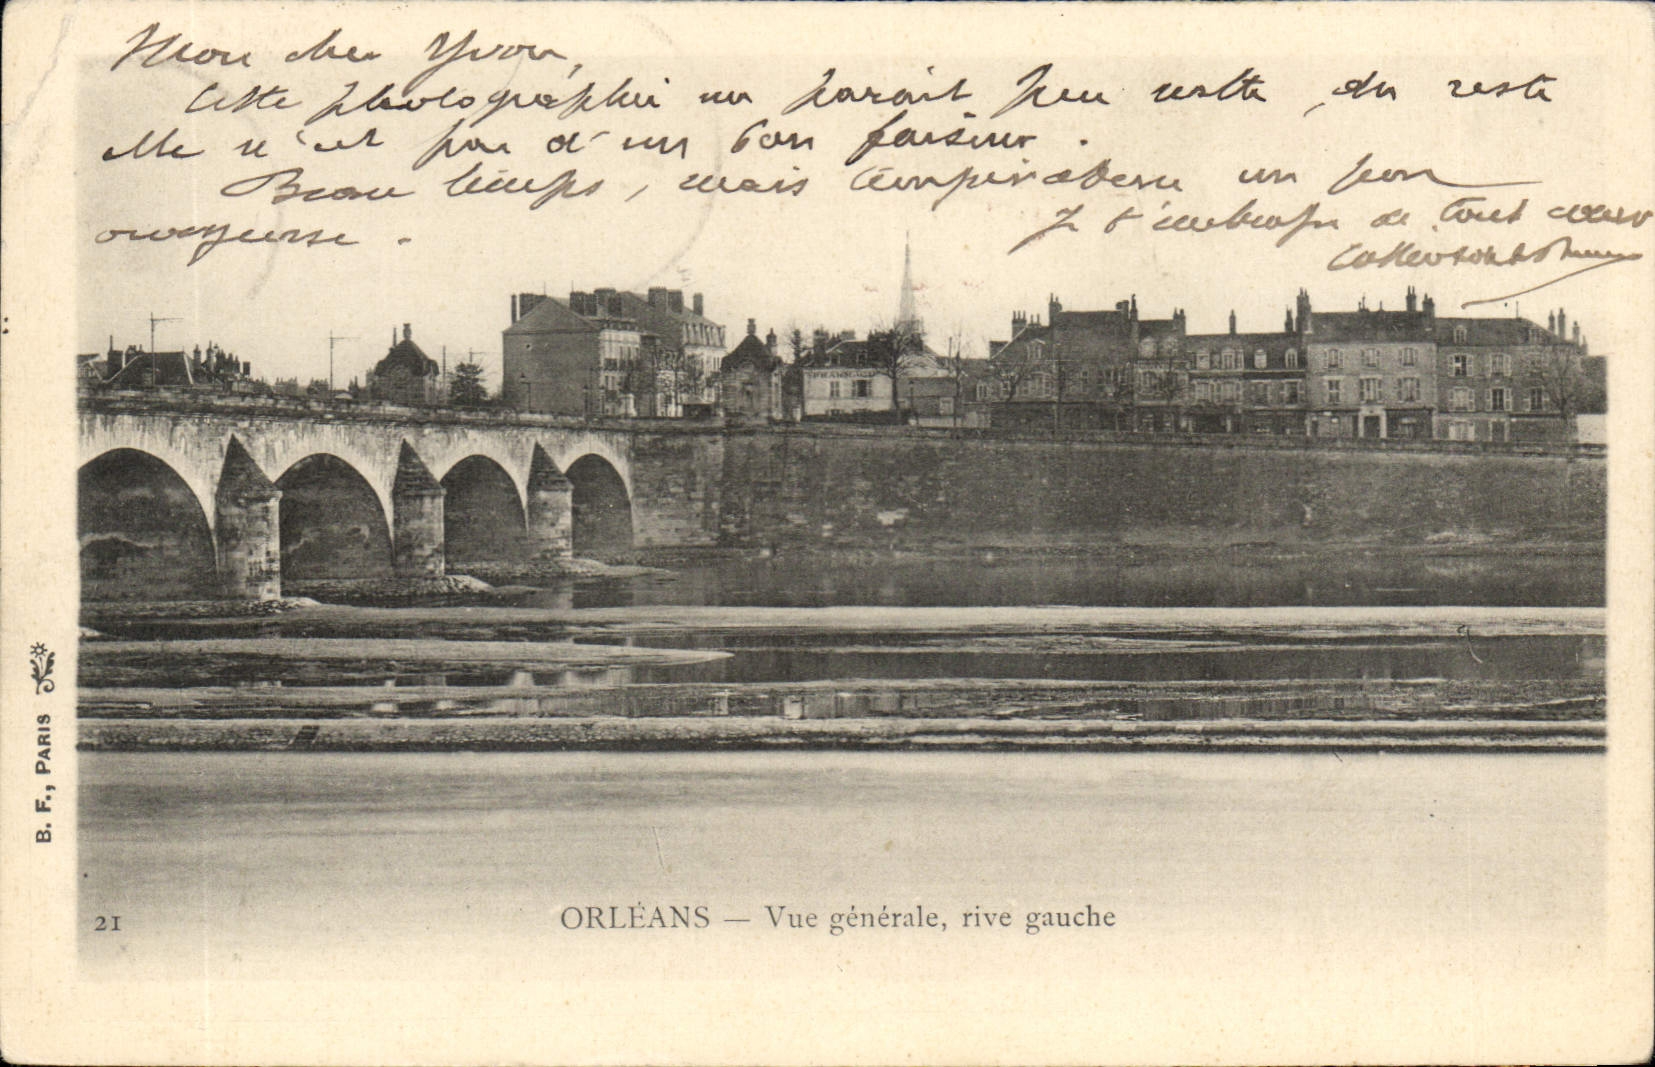 Mon cher Yvon,
Cette photographie me parait peu nette, du reste
elle n'est pas d'un bon faiseur.
Beau temps, mais température un peu
orageuse.
Je t'embrasse de tout cœur
FRANC
B. F., PARIS
21
ORLÉANS — Vue générale, rive gauche